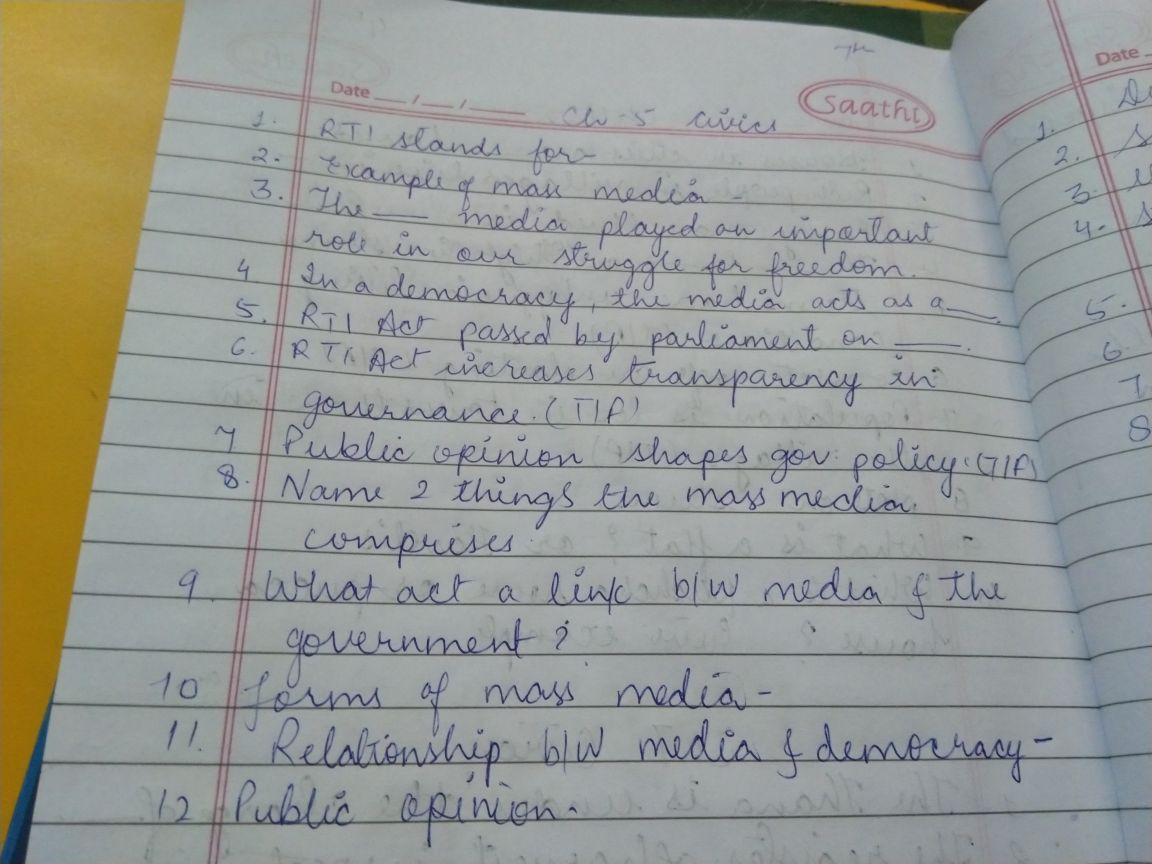 7th
Date __/__/____ Ch-5 Civics Saathi
1. RTI stands for-
2. Example of mass media -
3. The ___ media played an important
role in our struggle for freedom.
4 In a democracy, the media acts as a___.
5. RTI Act passed by parliament on ____.
6. RTI Act increases transparency in
governance. (T/F)
7 Public opinion shapes gov. policy. (T/F)
8. Name 2 things the mass media
comprises
9. What act a link b/w media & the
government?
10 forms of mass media -
11. Relationship b/w media & democracy -
12 Public opinion.
Date
1.
2.
3.
4.
5.
6
7
8